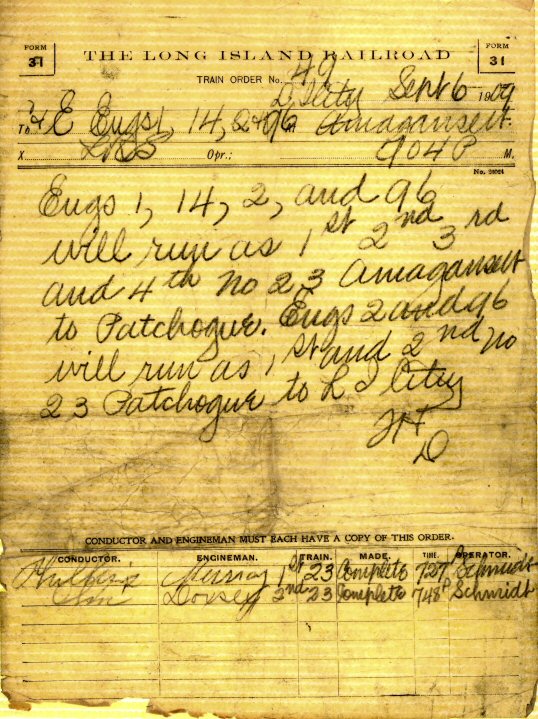 FORM 31
THE LONG ISLAND RAILROAD
FORM 31
TRAIN ORDER No. 49
L I City Sept 6 1909
To C & E Engs 1, 14, 2 & 96 At Amagansett.
X Opr.; 704 P M.
No. 31024
Engs 1, 14, 2, and 96
will run as 1st 2nd 3rd
and 4th No 23 Amagansett
to Patchogue. Engs 2 and 96
will run as 1st and 2nd No
23 Patchogue to L I City
CONDUCTOR AND ENGINEMAN MUST EACH HAVE A COPY OF THIS ORDER.
CONDUCTOR. ENGINEMAN. TRAIN. MADE. TIME. OPERATOR.
Murray 1st 23 Complete 727P Schmidt
Dorsey 2nd 23 Complete 748P Schmidt